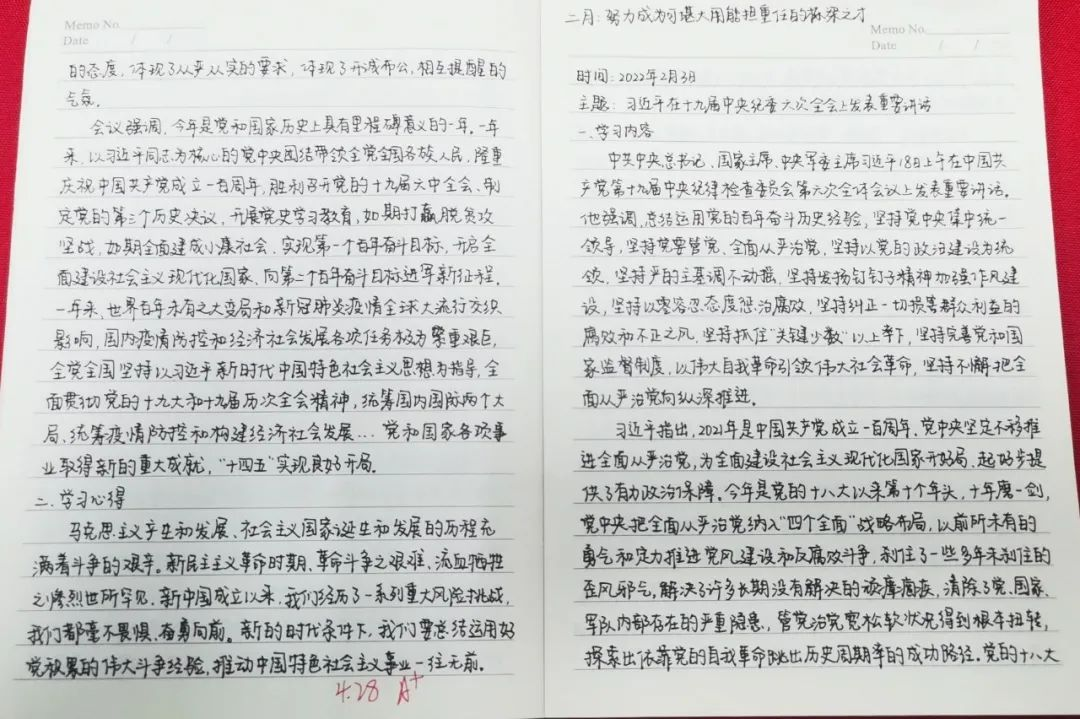 Memo No.
Date / /
的态度，体现了从严从实的要求，体现了开诚布公，相互提醒的
气氛。
会议强调，今年是党和国家历史上具有里程碑意义的一年。一年
来，以习近平同志为核心的党中央团结带领全党全国各族人民，隆重
庆祝中国共产党成立一百周年，胜利召开党的十九届六中全会、制
定党的第三个历史决议，开展党史学习教育，如期打赢脱贫攻
坚战，如期全面建成小康社会、实现第一个百年奋斗目标，开启全
面建设社会主义现代化国家、向第二个百年奋斗目标进军新征程。
一年来，世界百年未有之大变局和新冠肺炎疫情全球大流行交织
影响，国内疫情防控和经济社会发展各项任务极为繁重艰巨，
全党全国坚持以习近平新时代中国特色社会主义思想为指导，全
面贯彻党的十九大和十九届历次全会精神，统筹国内国际两个大
局、统筹疫情防控和构建经济社会发展…党和国家各项事
业取得新的重大成就，“十四五”实现良好开局。
二、学习心得
马克思主义产生和发展、社会主义国家诞生和发展的历程充
满着斗争的艰辛。新民主主义革命时期，革命斗争之艰难、流血牺牲
之惨烈世所罕见。新中国成立以来，我们经历了一系列重大风险挑战，
我们都毫不畏惧、奋勇向前。新的时代条件下，我们要总结运用好
党积累的伟大斗争经验，推动中国特色社会主义事业一往无前。
4.28 A+
二月：努力成为可堪大用能担重任的栋梁之才
Memo No.
Date / /
时间：2022年2月3日
主题：习近平在十九届中央纪委六次全会上发表重要讲话
一、学习内容
中共中央总书记、国家主席、中央军委主席习近平18日上午在中国共
产党第十九届中央纪律检查委员会第六次全体会议上发表重要讲话。
他强调，总结运用党的百年奋斗历史经验，坚持党中央集中统一
领导，坚持党要管党、全面从严治党，坚持以党的政治建设为统
领，坚持严的主基调不动摇，坚持发扬钉钉子精神加强作风建
设，坚持以零容忍态度惩治腐败，坚持纠正一切损害群众利益的
腐败和不正之风，坚持抓住“关键少数”以上率下，坚持完善党和国
家监督制度，以伟大自我革命引领伟大社会革命，坚持不懈把全
面从严治党向纵深推进。
习近平指出，2021年是中国共产党成立一百周年，党中央坚定不移推
进全面从严治党，为全面建设社会主义现代化国家开好局、起好步提
供了有力政治保障。今年是党的十八大以来第十个年头，十年磨一剑，
党中央把全面从严治党纳入“四个全面”战略布局，以前所未有的
勇气和定力推进党风建设和反腐败斗争，刹住了一些多年未刹住的
歪风邪气，解决了许多长期没有解决的顽瘴痼疾，清除了党、国家、
军队内部存在的严重隐患，管党治党宽松软状况得到根本扭转，
探索出依靠党的自我革命跳出历史周期率的成功路径。党的十八大